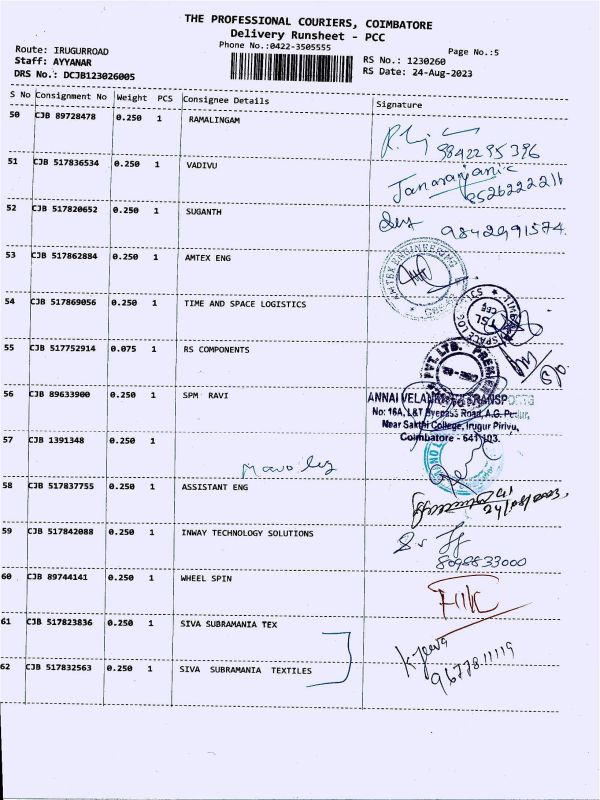 THE PROFESSIONAL COURIERS, COIMBATORE
Delivery Runsheet - PCC
Phone No.:0422-3505555
Page No.:5
Route: IRUGURROAD
Staff: AYYANAR
DRS No.: DCJB123026005
RS No.: 1230260
RS Date: 24-Aug-2023
S No Consignment No Weight PCS Consignee Details Signature
50 CJB 89728478 0.250 1 RAMALINGAM
9842295396
51 CJB 517836534 0.250 1 VADIVU
Janaranjanie
8526222216
52 CJB 517820652 0.250 1 SUGANTH
9842991574
53 CJB 517862884 0.250 1 AMTEX ENG
AMTEX ENGINEERING
54 CJB 517869056 0.250 1 TIME AND SPACE LOGISTICS
TSL
CBE
55 CJB 517752914 0.075 1 RS COMPONENTS
PVT. LTD. PREMIER
56 CJB 89633900 0.250 1 SPM RAVI
ANNAI VELANKANNI TRANSPORTS
No: 16A, L&T Byepass Road, A.G. Pudur,
Near Sakthi College, Irugur Pirivu,
Coimbatore - 641 103.
57 CJB 1391348 0.250 1
58 CJB 517837755 0.250 1 ASSISTANT ENG
59 CJB 517842088 0.250 1 INWAY TECHNOLOGY SOLUTIONS
8098833000
60 CJB 89744141 0.250 1 WHEEL SPIN
61 CJB 517823836 0.250 1 SIVA SUBRAMANIA TEX
K. Jeeva
9677811119
62 CJB 517832563 0.250 1 SIVA SUBRAMANIA TEXTILES